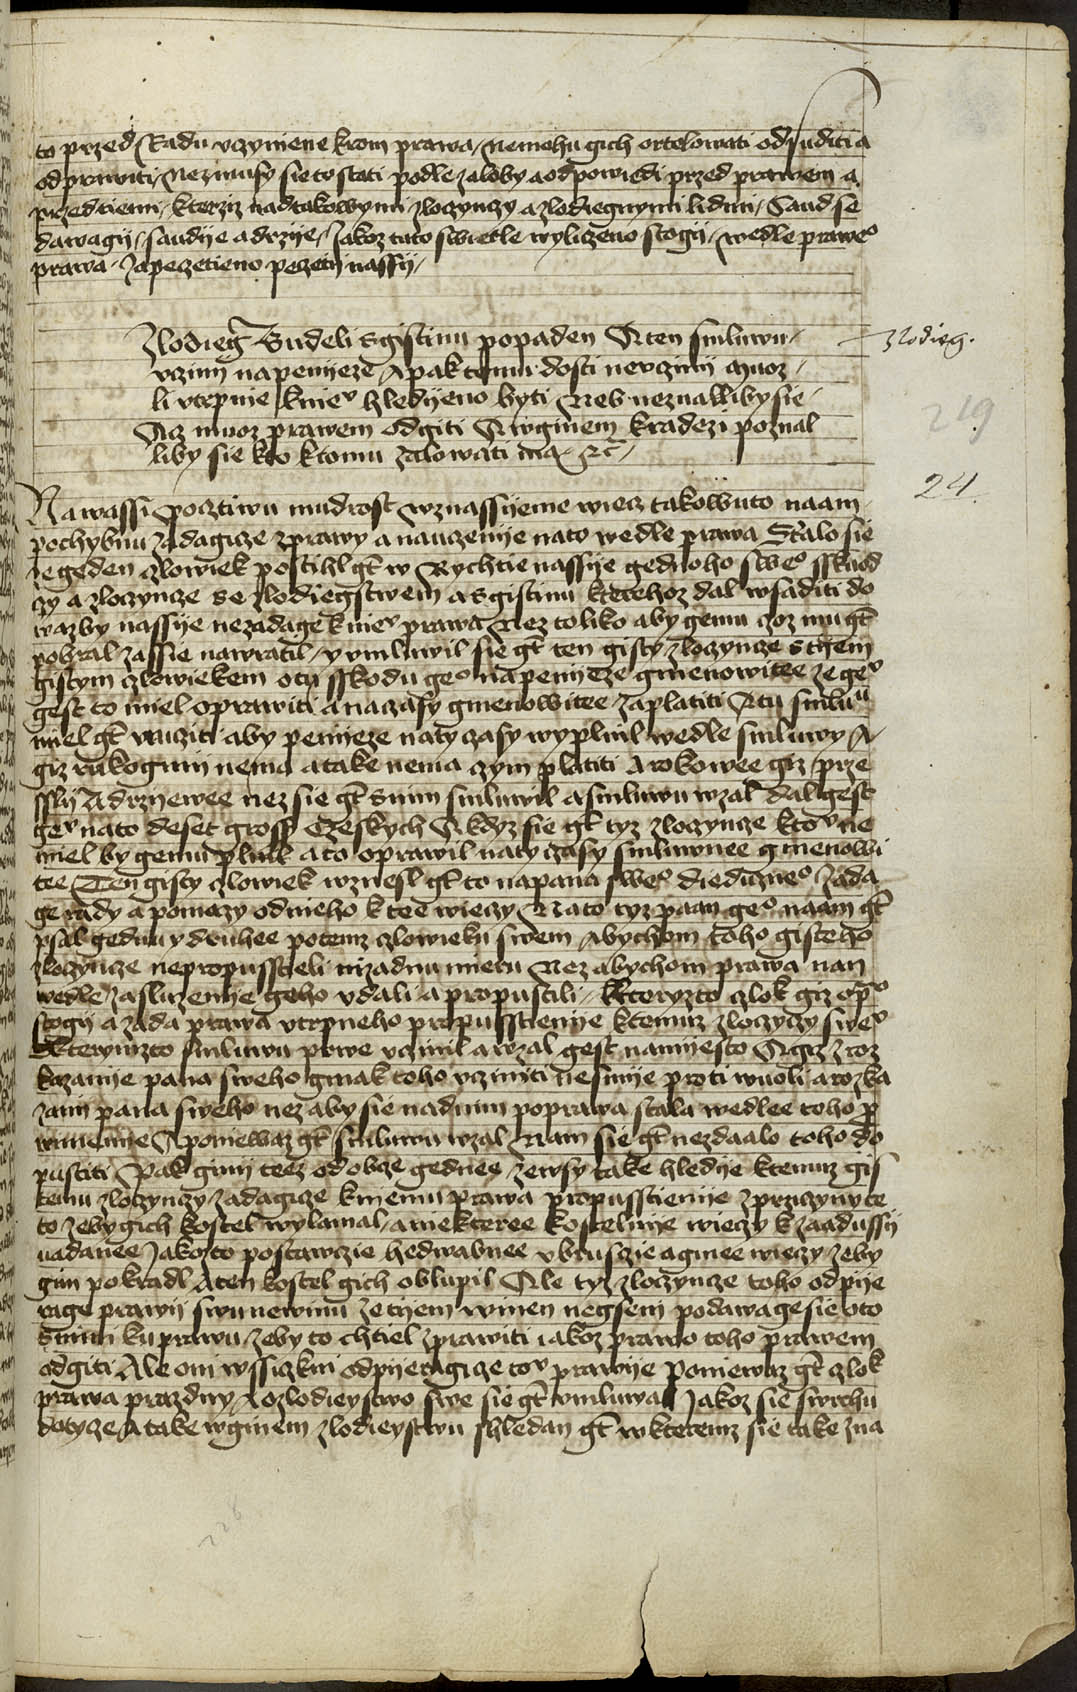 to przed Radu vczynene krom prawa, nemohu gich ortelowati odsuditi a
odprawiti, Nez musy sie to stati podle zaloby a odpowiedi przed prawem a
przed tiemi, kterziz nad takowymi zloczynczy a zlodiegnymi lidmi, Saud se
dawagij, saudije a drzije, Jakoz tuto swietle wyliczeno stogij, wedle praweo
prawa, Zapeczetieno peczetij nassij,
Zlodieg Budeli s gistinu popaden A ten smluwu,
vczinij na penijeze, A pak tomu dosti nevczinij muoz,
li vtrpnie k niev hledijeno byti Neb neznallliby sie,
Az muoz prawem odgiti A w ginem kradezi poznal
liby sie kto k tomu zalowati ma, &c,
Zlodieg.
219
24.
Na wassi pocztiwu mudrost wznassijeme wiecz takowuto naam,
pochybnu zadagicze zprawy a nauczenije na to wedle prawa Stalo sie
ze geden czlowiek postihl gt w Rychtie nassije gednoho sweo sskuod
czy a zloczyncze se zlodiegstwem a s gistinu kterehoz dal wsaditi do
wazby nassije nezadage k niev prawa Nez toliko aby gemu czoz mu gt
pobral zassie nawratil, y vmluwil sie gt ten gisty zloczyncze s tijem
gistym czlowiekem o tu sskodu geo na penijeze gmenowitee ze gev
gest to miel oprawiti a na czasy gmenowitee zaplatiti A tu smluu
miel gt vcziti aby penijeze na ty czasy wyplnil wedle smluwy A,
giz rukogmi nema a take nema czym platiti A rokowee giz, prze
ssly A drzijewee nez sie gt s nim smluwil a smluwu wzal dal gest
gev na to deset gross Czeskych A kdyz sie gt tyz zloczyncze ktov ne
miel by gemu plnil a to oprawil na ty czasy smluwnee gmenowi
tee Ten gisty czlowiek wznesl gt to na pana sweo diediczneo zada
ge rady a pomoczy od nieho k tee wieczy Na to tyz paan geo naam gt
psal gednu y druhee potemz czlowieku swem Abychom toho gisteho
zloczyncze nepropusstieli nizadnu mieru Nez abychom prawa nan
wedle zasluzenije geho vdali a propustili, Kteryzto czlok giz opo
stogij a zada prawa vtrpneho propusstienije k temuz zloczyczy swev
S kterymzto smluwu prwe vczinil a wzal gest na mijesto A giz z roz
kazanije pana sweho ginak toho vcziniti nesmije proti wuoli a rozka
zanij pana sweho nez aby sie nad nim poprawa stala wedlee toho p
winenije A poniewaz gt smluwu wzal Nam sie gt nezdaalo toho do
pustiti Pak ginij teez od obcze gednee, ze wsy take hledije k temuz gis
temu zloczynczy zadagicze k niemu prawa propusstienije z prziczyny te
to zeby gich kostel wylamal, a niekteree kostelnije wieczy k zaadussij
nadanee Jakozto postawczie hedwabnee vbruszie a ginee wieczy, zeby
gim pokradl A ten kostel gich oblupil Ale tyz zloczyncze toho odpije
rage prawij swu newinu ze tijem winen negsem podawage sie o to
s nimi ku prawu, zeby to chtiel zprawiti iakoz prawo toho prawem
odgiti Ale oni wssiczkni odpijeragicze tov prawije Poniewaz gt czlok
prawa prazdny, A o zlodieystwo swe sie gt vmluwal Jakoz sie swrchu
dotycze A take w ginem zlodieystwu shledan gt w kteremz sie take zna
226